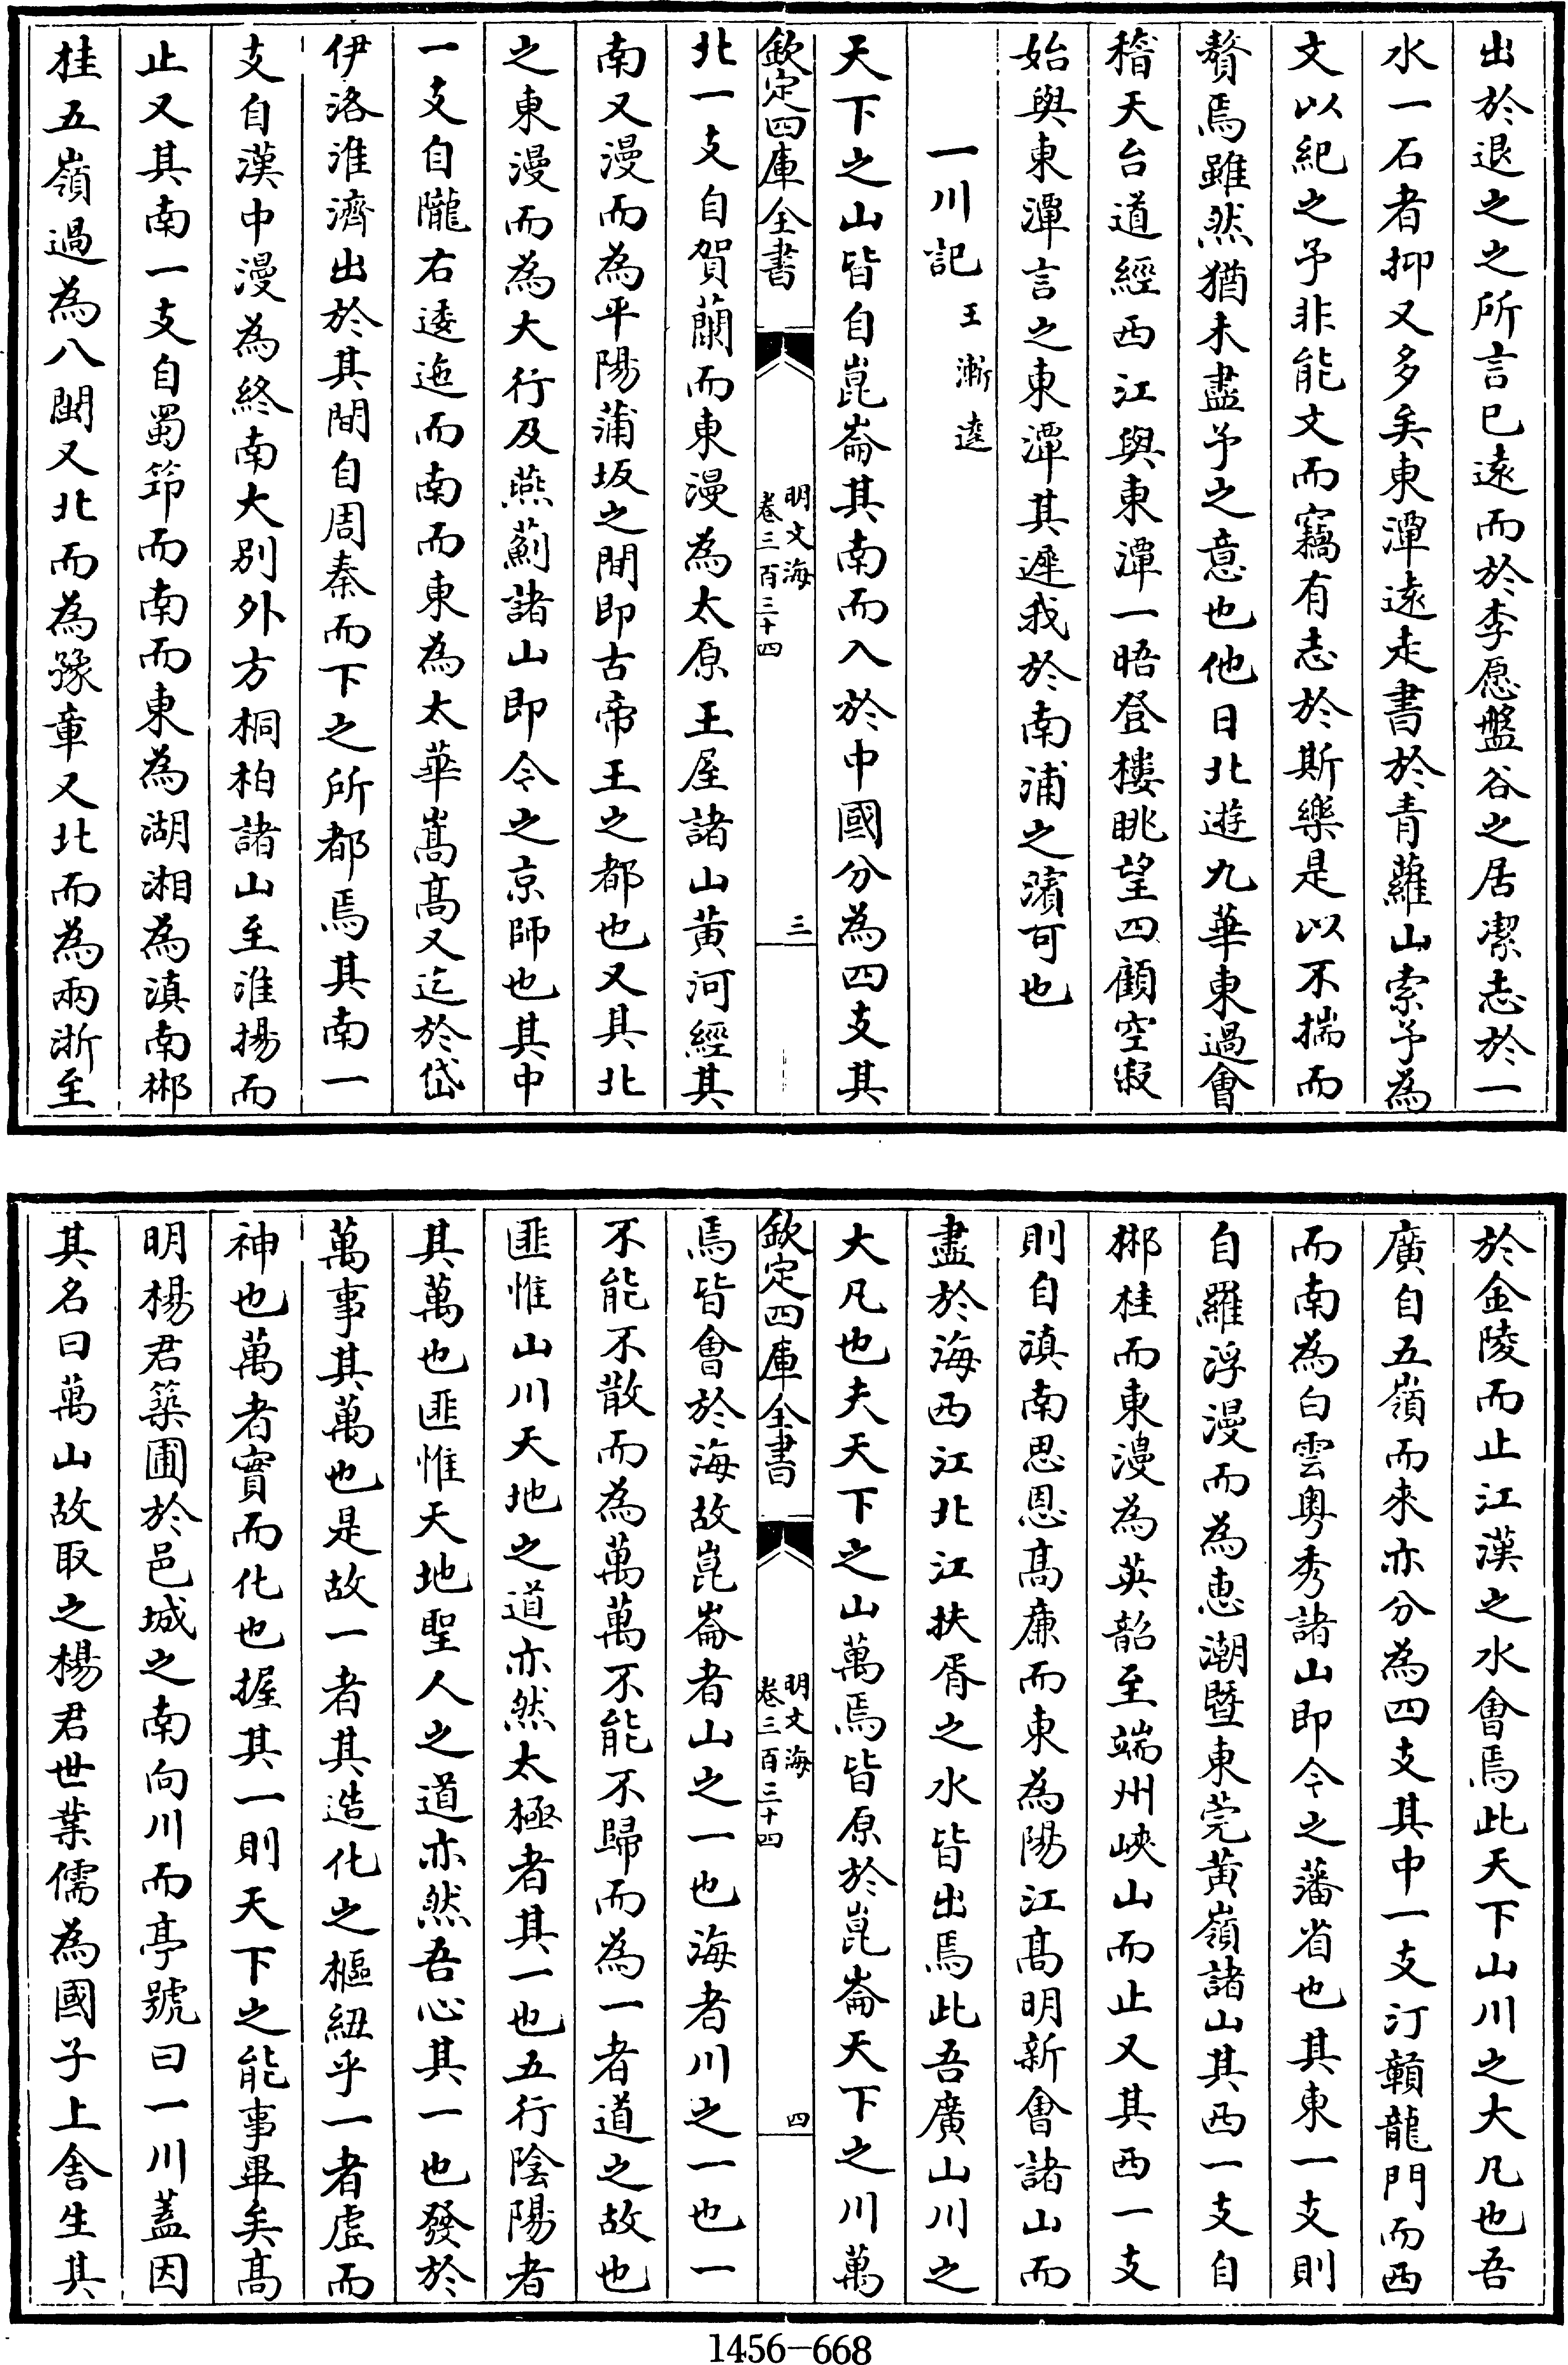 出於退之之所言已遠而於李愿盤谷之居潔志於一
水一石者抑又多矣東潭逺走書於青蘿山索予為
文以紀之予非能文而竊有志於斯樂是以不揣而
贅焉雖然猶未盡予之意也他日北遊九華東過會
稽天台道經西江與東潭一晤登樓眺望四顧空寂
始與東潭言之東潭其遲我於南浦之濱可也
一川記 王漸逵
天下之山皆自崑崙其南而入於中國分為四支其
欽定四庫全書 明文海 卷三百三十四 三
北一支自賀蘭而東漫為太原王屋諸山黃河經其
南又漫而為平陽蒲坂之間即古帝王之都也又其北
之東漫而為大行及燕薊諸山即今之京師也其中
一支自隴右逶迤而南而東為太華嵩髙又迄於岱
伊洛淮濟出於其間自周秦而下之所都焉其南一
支自漢中漫為終南大別外方桐柏諸山至淮揚而
止又其南一支自蜀筰而南而東為湖湘為滇南郴
桂五嶺過為八閩又北而為豫章又北而為兩浙至
於金陵而止江漢之水會焉此天下山川之大凡也吾
廣自五嶺而來亦分為四支其中一支汀贑龍門而西
而南為白雲粤秀諸山即今之藩省也其東一支則
自羅浮漫而為惠潮暨東莞黃嶺諸山其西一支自
郴桂而東漫為英韶至端州峽山而止又其西一支
則自滇南思恩髙廉而東為陽江髙明新會諸山而
盡於海西江北江扶胥之水皆出焉此吾廣山川之
大凡也夫天下之山萬焉皆原於崑崙天下之川萬
欽定四庫全書 明文海 卷三百三十四 四
焉皆會於海故崑崙者山之一也海者川之一也一
不能不散而為萬萬不能不歸而為一者道之故也
匪惟山川天地之道亦然太極者其一也五行陰陽者
其萬也匪惟天地聖人之道亦然吾心其一也發於
萬事其萬也是故一者其造化之樞紐乎一者虛而
神也萬者實而化也握其一則天下之能事畢矣髙
明楊君築圃於邑城之南向川而亭號曰一川蓋因
其名曰萬山故取之楊君世業儒為國子上舍生其
1456-668